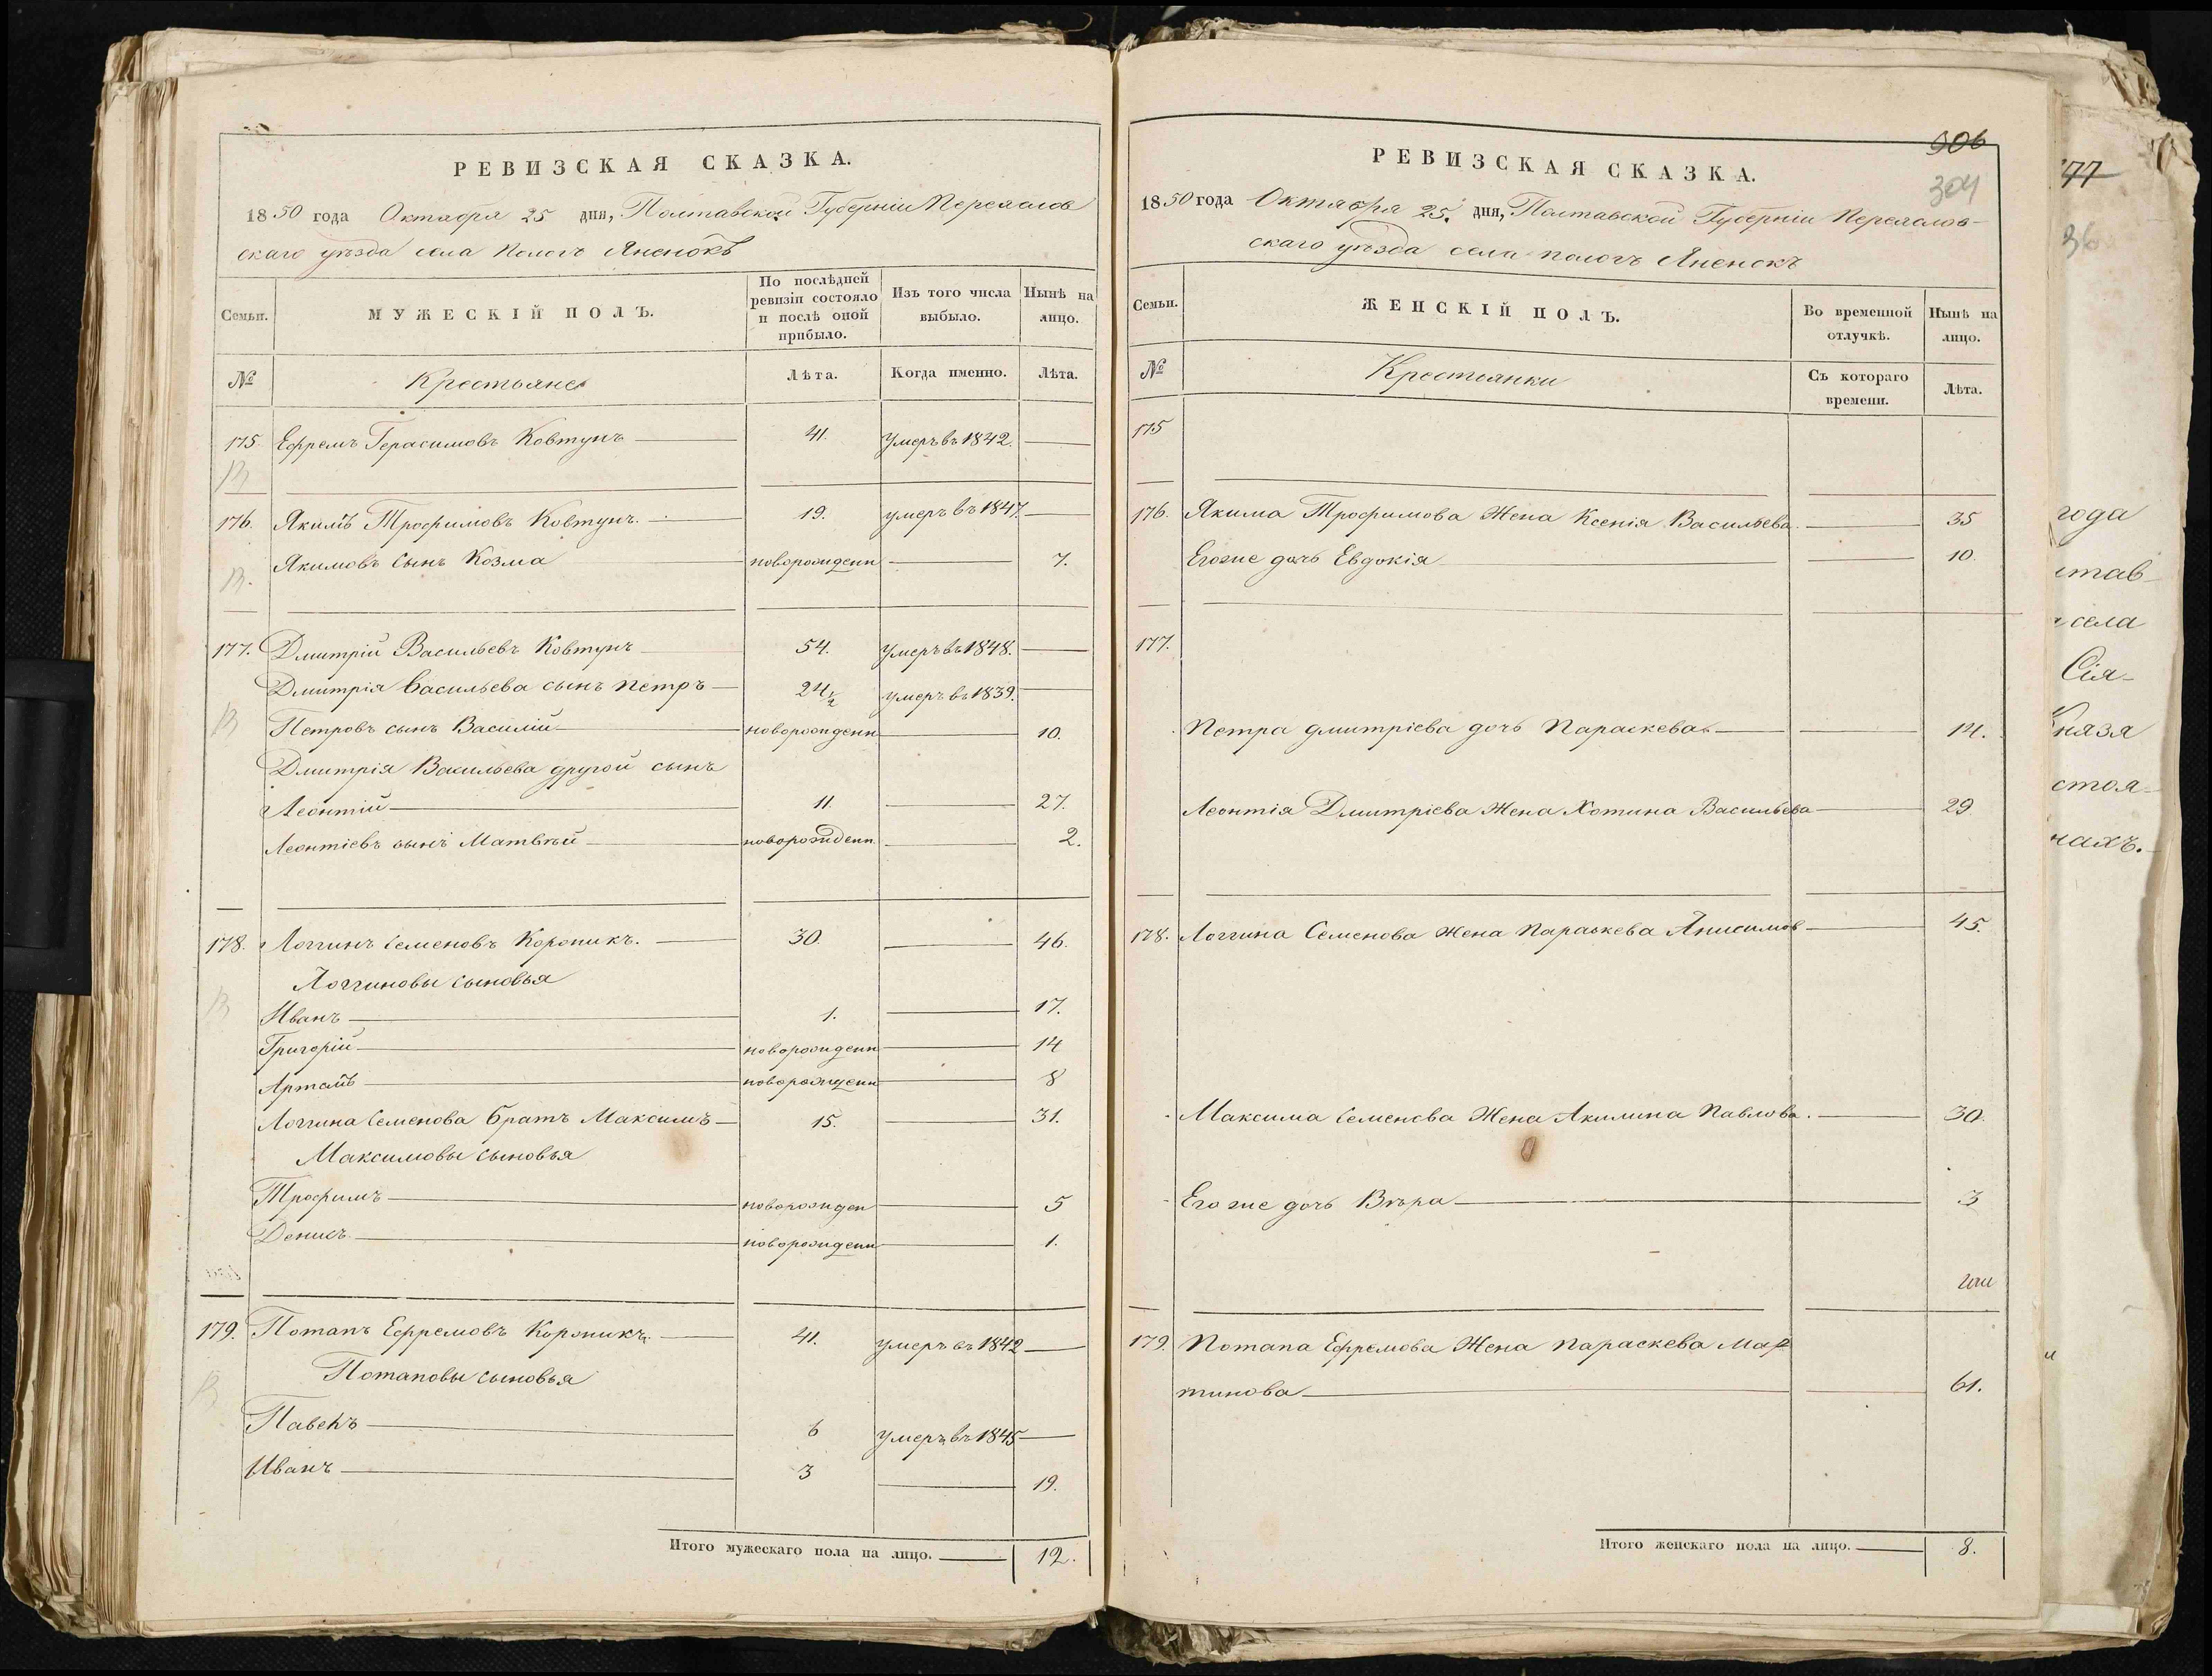 РЕВИЗСКАЯ СКАЗКА.
1850 года Октября 25 дня, Полтавской Губерніи Переяслов
скаго уѣзда села Пологъ Яненокъ
Семьи. МУЖЕСКІЙ ПОЛЪ. По послѣдней ревизіи состояло и послѣ оной прибыло. Изъ того числа выбыло. Нынѣ на лицо.
№ Крестьяне Лѣта. Когда именно. Лѣта.
175. Ефремъ Герасимовъ Ковтунъ 41. умеръ въ 1842.
176. Якимъ Трофимовъ Ковтунъ. 19. умеръ въ 1847.
Якимовъ сынъ Козма новорожденн 7.
177. Дмитрій Васильевъ Ковтунъ 54. умеръ въ 1848.
Дмитрія Васильева сынъ Петръ 24½ умеръ въ 1839.
Петровъ сынъ Василій новорожденн 10.
Дмитрія Васильева другой сынъ
Леонтій 11. 27.
Леонтіевъ сынъ Матвѣй новорожденн. 2.
178. Логгинъ Семеновъ Коропикъ. 30. 46.
Логгиновы сыновья
Иванъ 1. 17.
Григорій новорожденн 14
Артамъ новорожденн 8
Логгина Семенова братъ Максимъ 15. 31.
Максимовы сыновья
Трофимъ новорожден 5
Денисъ новорожденн 1.
179. Потапъ Ефремовъ Коропикъ. 41. умеръ въ 1842
Потаповы сыновья
Павелъ 6 умеръ въ 1845
Иванъ 3 19.
Итого мужескаго пола на лицо. 12.
306
304
РЕВИЗСКАЯ СКАЗКА.
1850 года Октября 25. дня, Полтавской Губерніи Переяслов-
скаго уѣзда села Пологъ Яненокъ
Семьи. ЖЕНСКІЙ ПОЛЪ. Во временной отлучкѣ. Нынѣ на лицо.
№ Крестьянки Съ котораго времени. Лѣта.
175
176. Якима Трофимова Жена Ксенія Васильева. 35
Егоже дочь Евдокія 10.
177.
Петра Дмитріева дочь Параскева 14.
Леонтія Дмитріева Жена Хотина Васильева 29.
178. Логгина Семенова Жена Параскева Анисимов 45.
Максима Семенова Жена Акилина Павлова. 30.
Егоже дочь Вѣра 3
179. Потапа Ефремова Жена Параскева Мар
тинова 61.
Итого женскаго пола на лицо. 8.
77
36
года
тав
села
Сія
Князя
стоя
нахъ.